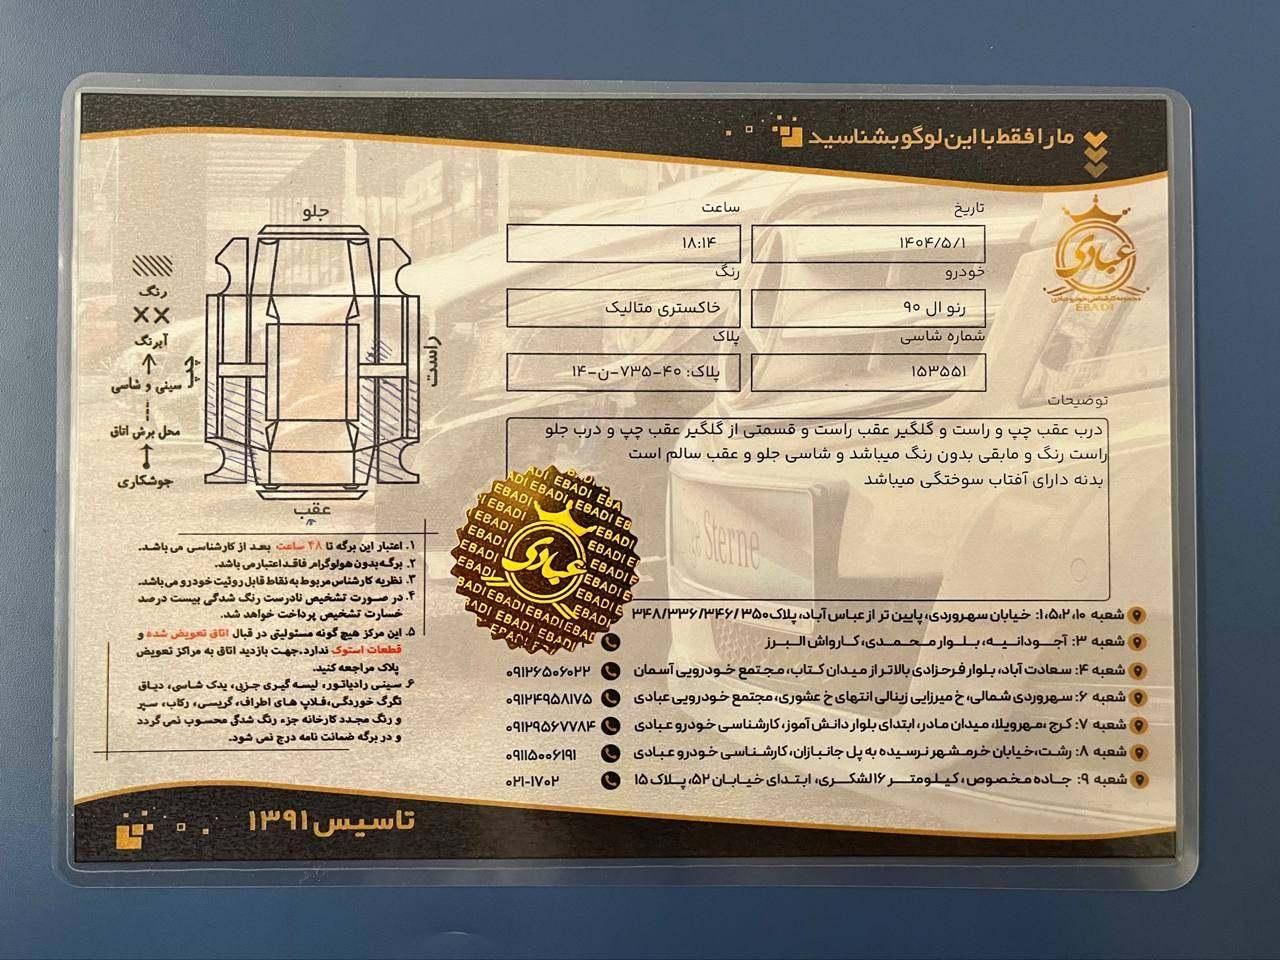 ما را فقط با این لوگو بشناسید
عبادی
مجموعه کارشناسی خودرو عبادی
EBADI
تاریخ
۱۴۰۴/۵/۱
ساعت
۱۸:۱۴
خودرو
رنو ال ۹۰
رنگ
خاکستری متالیک
شماره شاسی
۱۵۳۵۵۱
پلاک
پلاک: ۴۰-۷۳۵-ن-۱۴
توضیحات
درب عقب چپ و راست و گلگیر عقب راست و قسمتی از گلگیر عقب چپ و درب جلو
راست رنگ و مابقی بدون رنگ میباشد و شاسی جلو و عقب سالم است
بدنه دارای آفتاب سوختگی میباشد
جلو
راست
چپ
عقب
رنگ
آبرنگ
سینی و شاسی
محل برش اتاق
جوشکاری
۱. اعتبار این برگه تا ۴۸ ساعت بعد از کارشناسی می باشد.
۲. برگه بدون هولوگرام فاقد اعتبار می باشد.
۳. نظریه کارشناس مربوط به نقاط قابل روئیت خودرو می باشد.
۴. در صورت تشخیص نادرست رنگ شدگی بیست درصد
خسارت تشخیص پرداخت خواهد شد.
۵. این مرکز هیچ گونه مسئولیتی در قبال اتاق تعویض شده و
قطعات استوک ندارد.جهت بازدید اتاق به مراکز تعویض
پلاک مراجعه کنید.
۶. سینی رادیاتور، لیسه گیری جزیی، یدک شاسی، دیاق
تگرگ خوردگی،قلاب های اطراف، گریسی، رکاب، سپر
و رنگ مجدد کارخانه جزء رنگ شدگی محسوب نمی گردد
و در برگه ضمانت نامه درج نمی شود.
عبادی
EBADI
شعبه ۱،۵،۲،۱۰: خیابان سهروردی، پایین تر از عباس آباد، پلاک۳۴۸/۳۳۶/۳۴۶/۳۵۰
شعبه ۳: آجودانیه، بلوار محمدی، کارواش البرز
شعبه ۴: سعادت آباد، بلوار فرحزادی بالاتر از میدان کتاب، مجتمع خودرویی آسمان
۰۹۱۲۶۵۰۶۰۲۲
شعبه ۶: سهروردی شمالی، خ میرزایی زینالی انتهای خ عشوری، مجتمع خودرویی عبادی
۰۹۱۲۴۹۵۸۱۷۵
شعبه ۷: کرج ،مهرویلا، میدان مادر، ابتدای بلوار دانش آموز، کارشناسی خودرو عبادی
۰۹۱۲۹۵۶۷۷۸۴
شعبه ۸: رشت، خیابان خرمشهر نرسیده به پل جانبازان، کارشناسی خودرو عبادی
۰۹۱۱۵۰۰۶۱۹۱
شعبه ۹: جاده مخصوص، کیلومتر ۱۶ لشکری، ابتدای خیابان ۵۲، پلاک ۱۵
۰۲۱-۱۷۰۲
تاسیس ۱۳۹۱